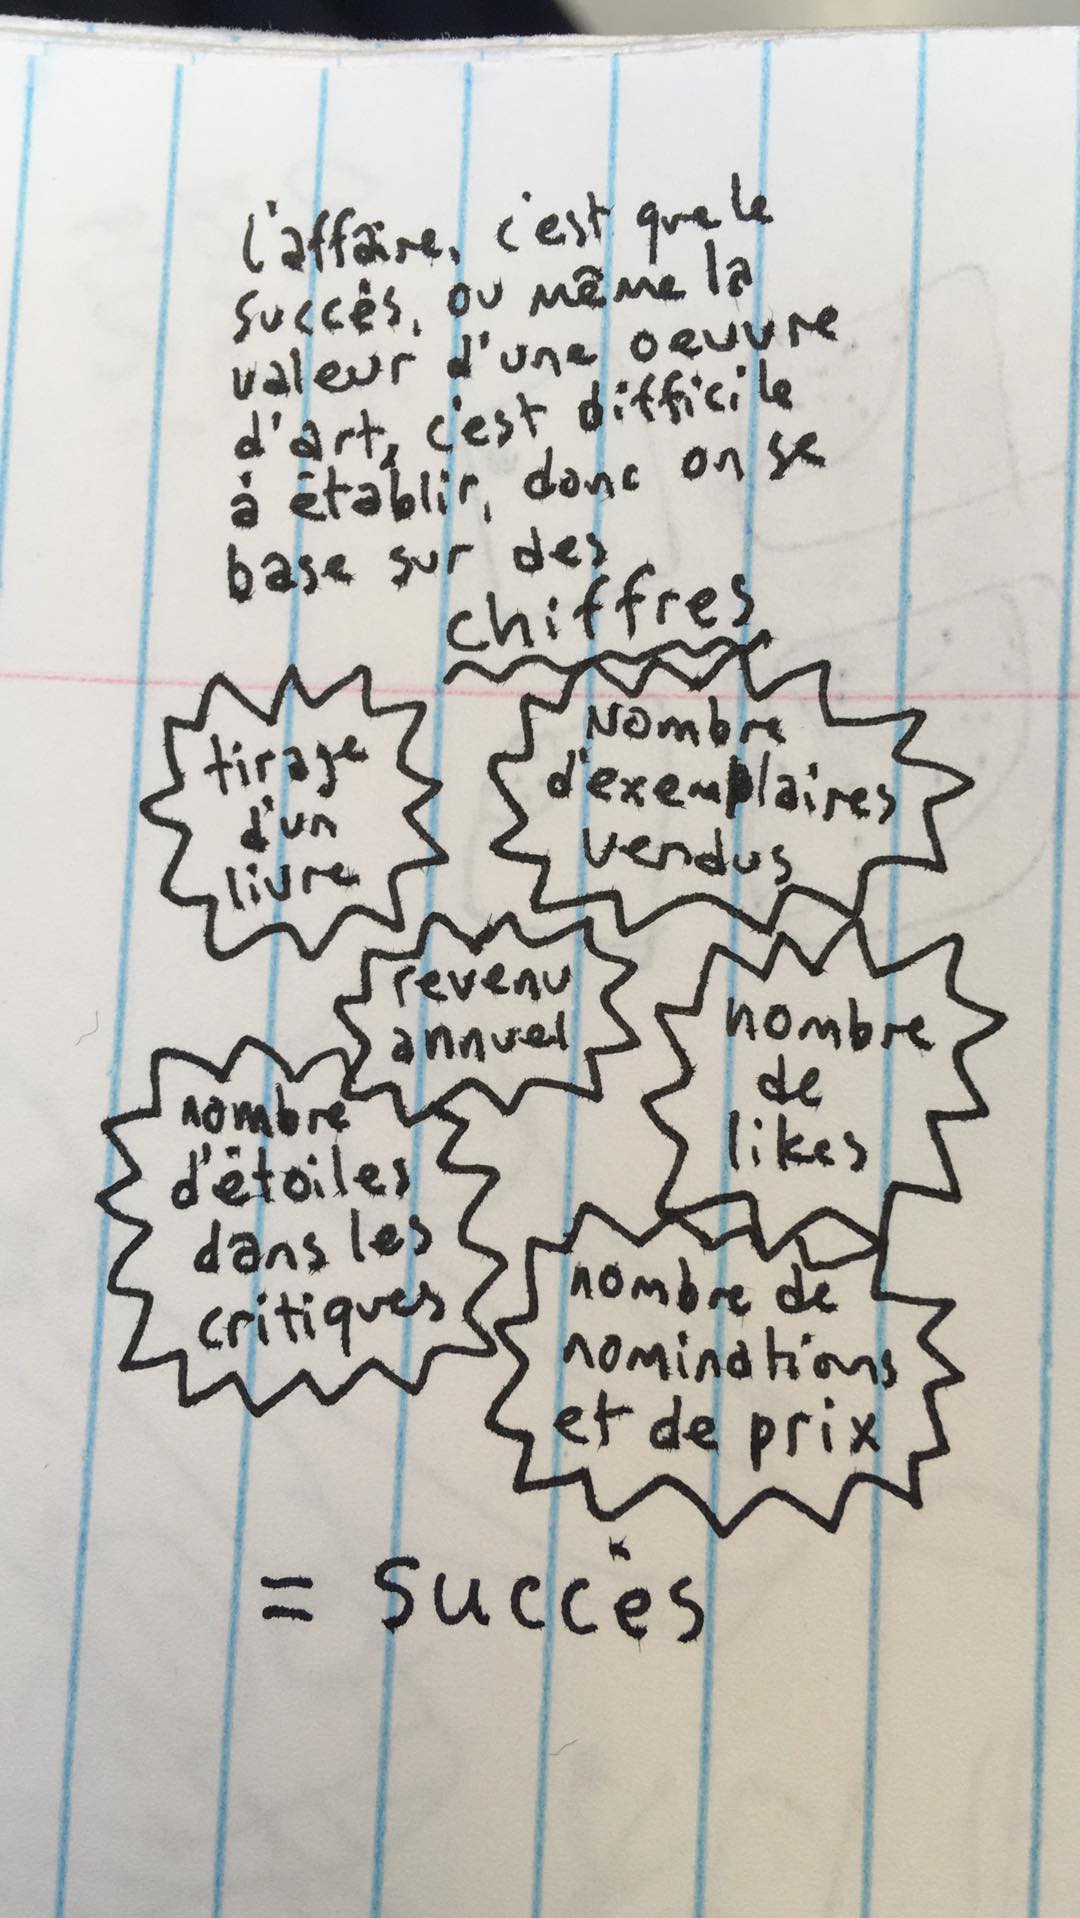 l'affaire, c'est que le
succès, ou même la
valeur d'une oeuvre
d'art, c'est difficile
à établir, donc on se
base sur des
chiffres
tirage
d'un
livre
Nombre
d'exemplaires
vendus
revenu
annuel
nombre
de
likes
nombre
d'étoiles
dans les
critiques
nombre de
nominations
et de prix
= succès